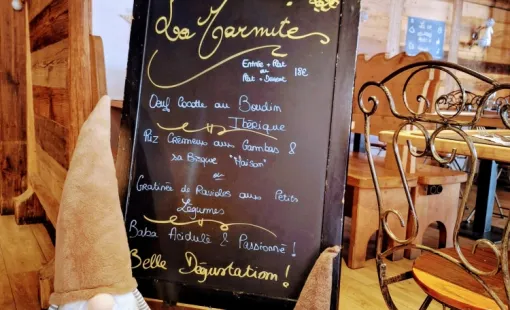 La Marmite
Entrée + Plat
ou
Plat + Dessert 18€
Oeuf Cocotte au Boudin
Ibérique
Riz Crémeux aux Gambas &
sa Bisque "Maison"
ou
Gratinée de Ravioles aux Petits
Légumes
Baba Acidulé & Passionné !
Belle Dégustation !